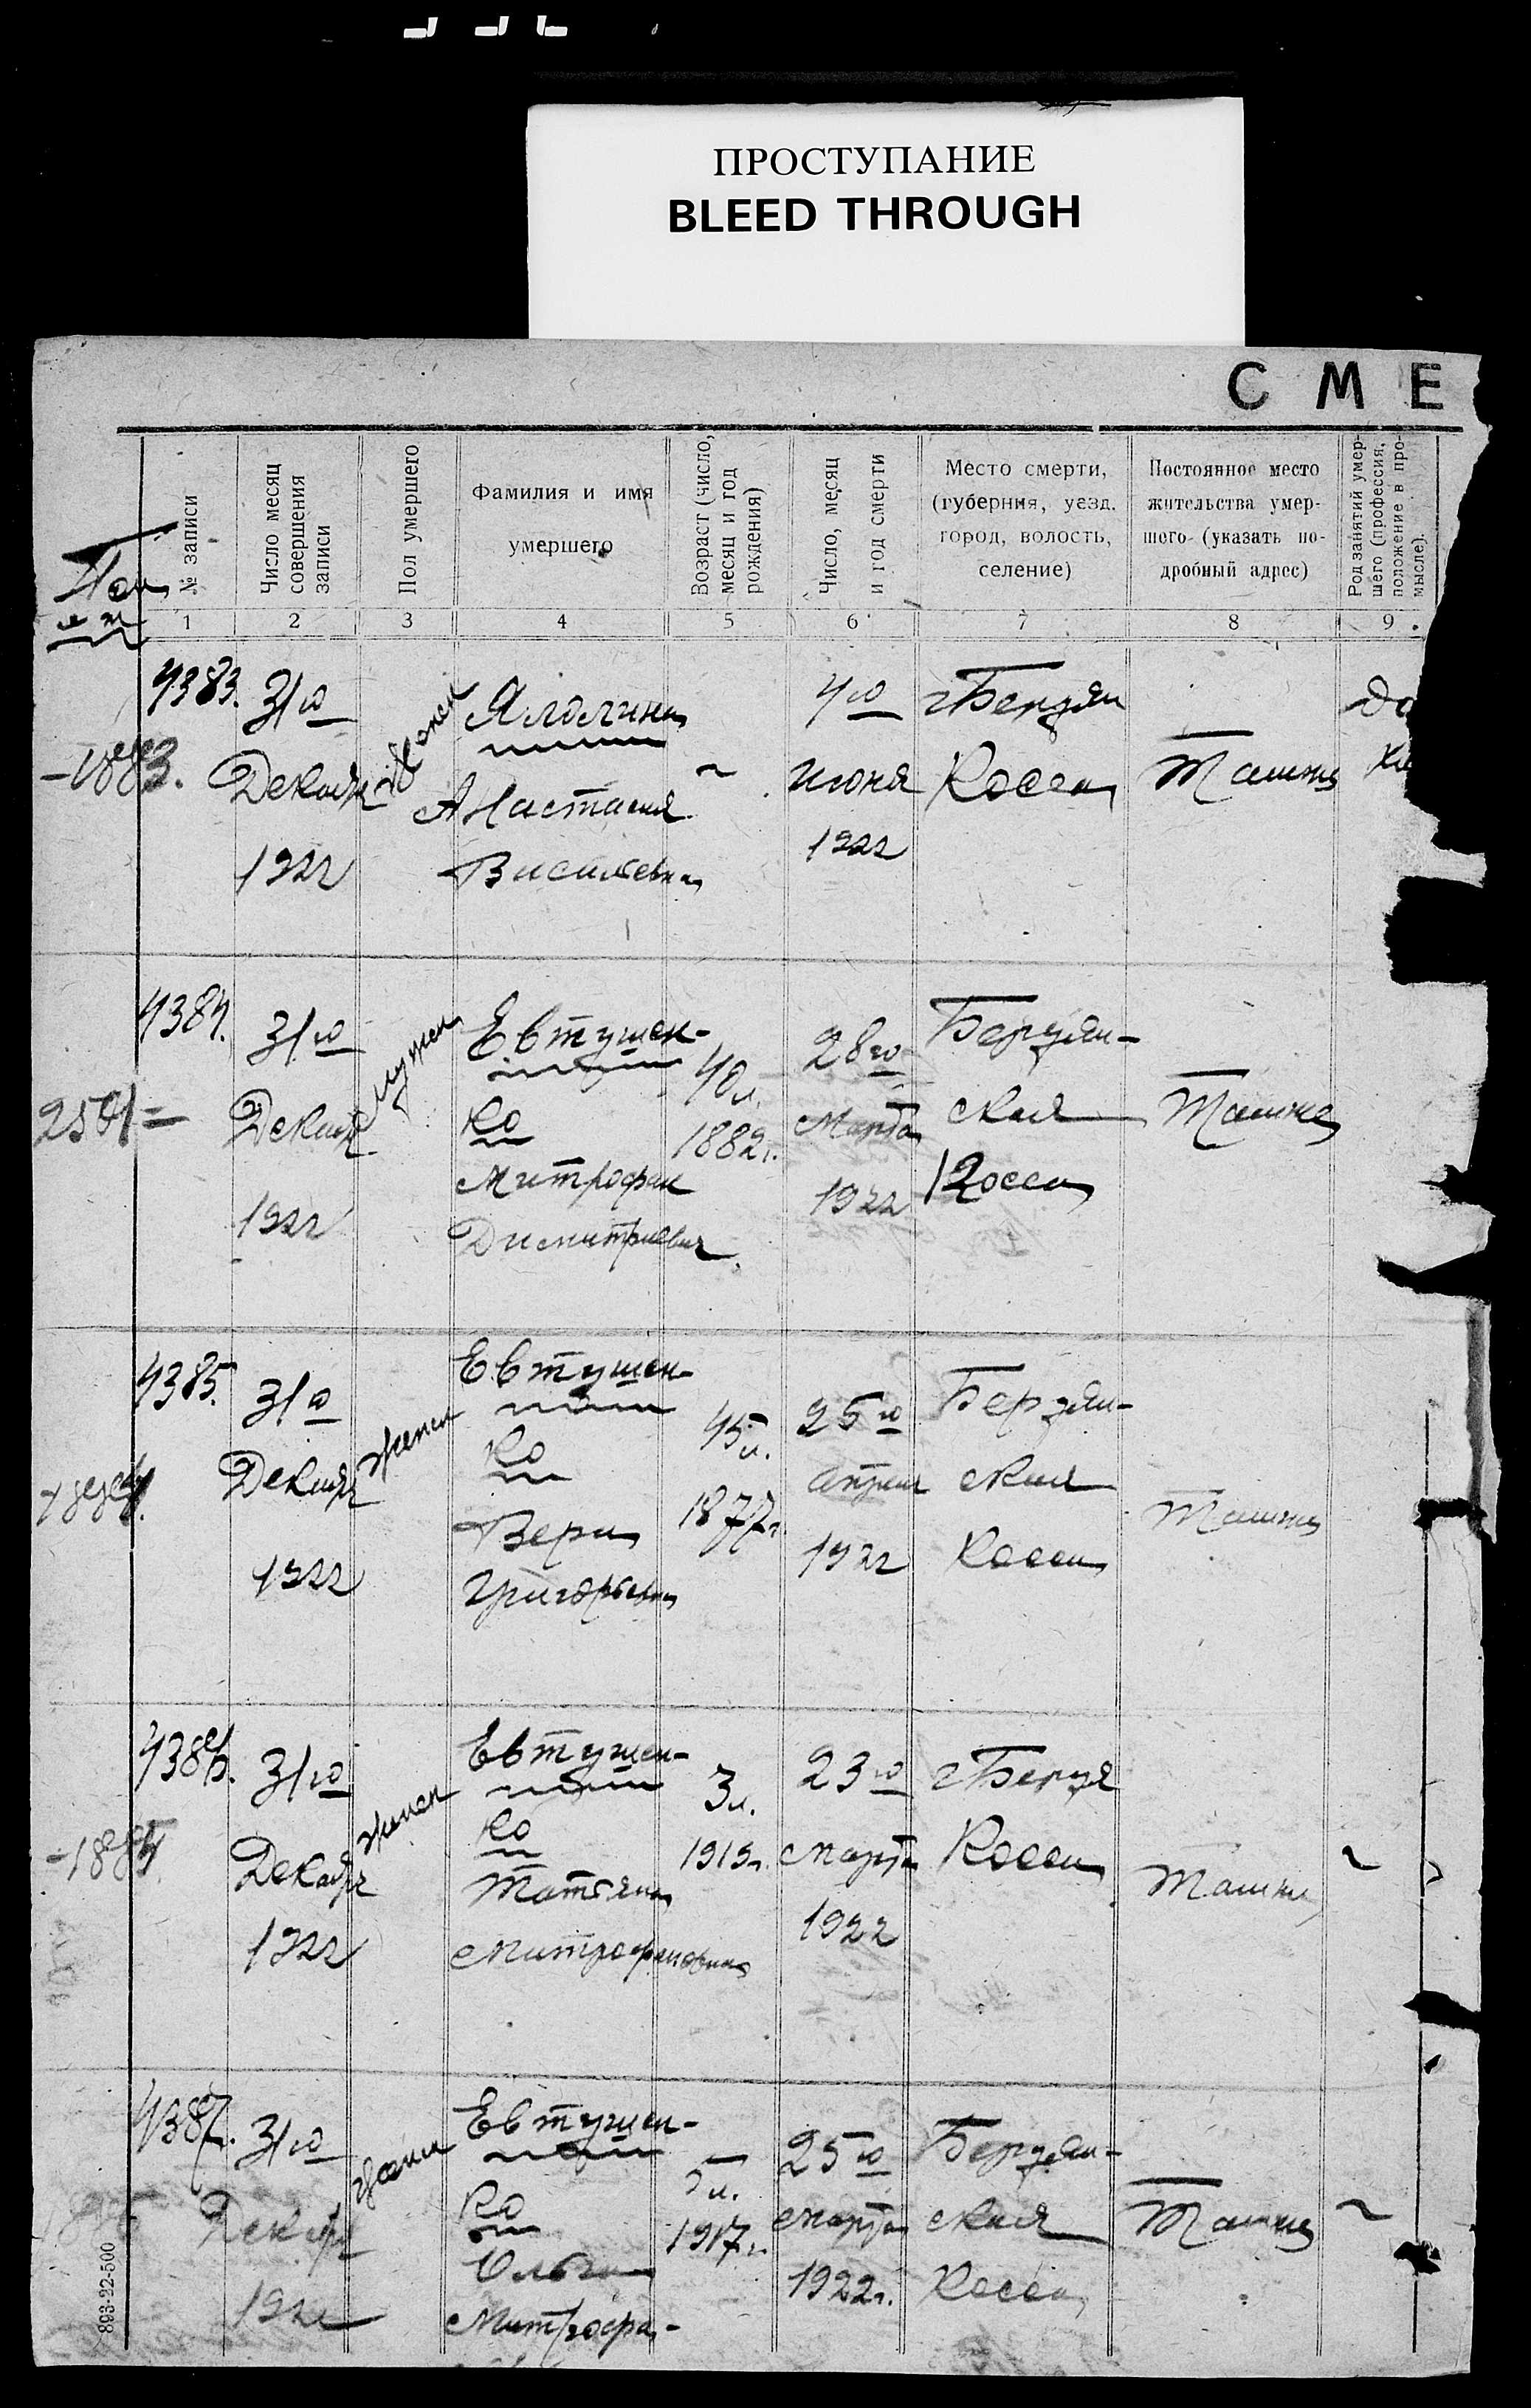 ПРОСТУПАНИЕ
BLEED THROUGH
С М Е
№ записи
Число месяц
совершения
записи
Пол умершего
Фамилия и имя
умершего
Возраст (число,
месяц и год
рождения)
Число, месяц
и год смерти
Место смерти,
(губерния, уезд,
город, волость,
селение)
Постоянное место
жительства умер-
шего (указать по-
дробный адрес)
Род занятий умер-
шего (профессия,
положение в про-
мысле).
1 2 3 4 5 6 7 8 9
4383.
31го
Декабр
1922
женск
Анастасия
Васильевна
~
4го
июня
1922
г Бердян
Косса
Тамже
-1883.
4384.
31го
Декабр
1922
мужск
Евтушен-
ко
Митрофан
Дмитриевич
40 л.
1882г.
28го
Марта
1922
Бердян-
ская
Косса
Тамже
4385.
31го
Декабр
1922
женск
Евтушен-
ко
Вера
Григорьевна
45 л.
1877г.
25го
апреля
1922
Бердян-
ская
Косса
Тамже
4386.
31го
Декабр
1922
женск
Евтушен-
ко
Татьяна
Митрофановна
3 л.
1919г.
23го
марта
1922
г Бердя
Косса
Тамже
~
4387.
31го
Декабр
1922
женск
Евтушен-
ко
Ольга
Митрофа-
5 л.
1917г.
25го
марта
1922г.
Бердян-
ская
Косса
Тамже
~
893-22-500